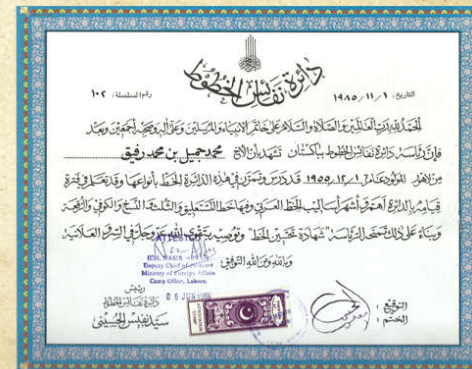 دائرة نفائس الخطوط
التاريخ: ١ / ١١ / ١٩٨٥
رقم السلسلة: ١٠٢
الحمد لله رب العالمين والصلاة والسلام على خاتم الأنبياء والمرسلين وعلى آله وصحبه أجمعين وبعد
فإن رئاسة دائرة نفائس الخطوط بباكستان تشهد بأن الأخ محمد جميل بن محمد رفيق
من لاهور المولود عام ١ / ١٢ / ١٩٥٥ قد درس وتمرن في هذه الدائرة الخط بأنواعها وقد تعلم في فترة
قيامه بالدائرة أهم وأشهر أساليب الخط العربي وفيها خط النستعليق والثلث والنسخ والكوفي والرقعة
وبناء على ذلك تمنحه الرئاسة "شهادة تحسين الخط" ونوصيه بتقوى الله عز وجل في السر والعلانية
وبالله ومن الله التوفيق
ATTESTED
Deputy Chief of Protocol
Ministry of Foreign Affairs
Camp Office, Lahore.
06 JUN
رئيس
دائرة نفائس الخطوط
سيد نفيس الحسيني
التوقيع :
الختم :